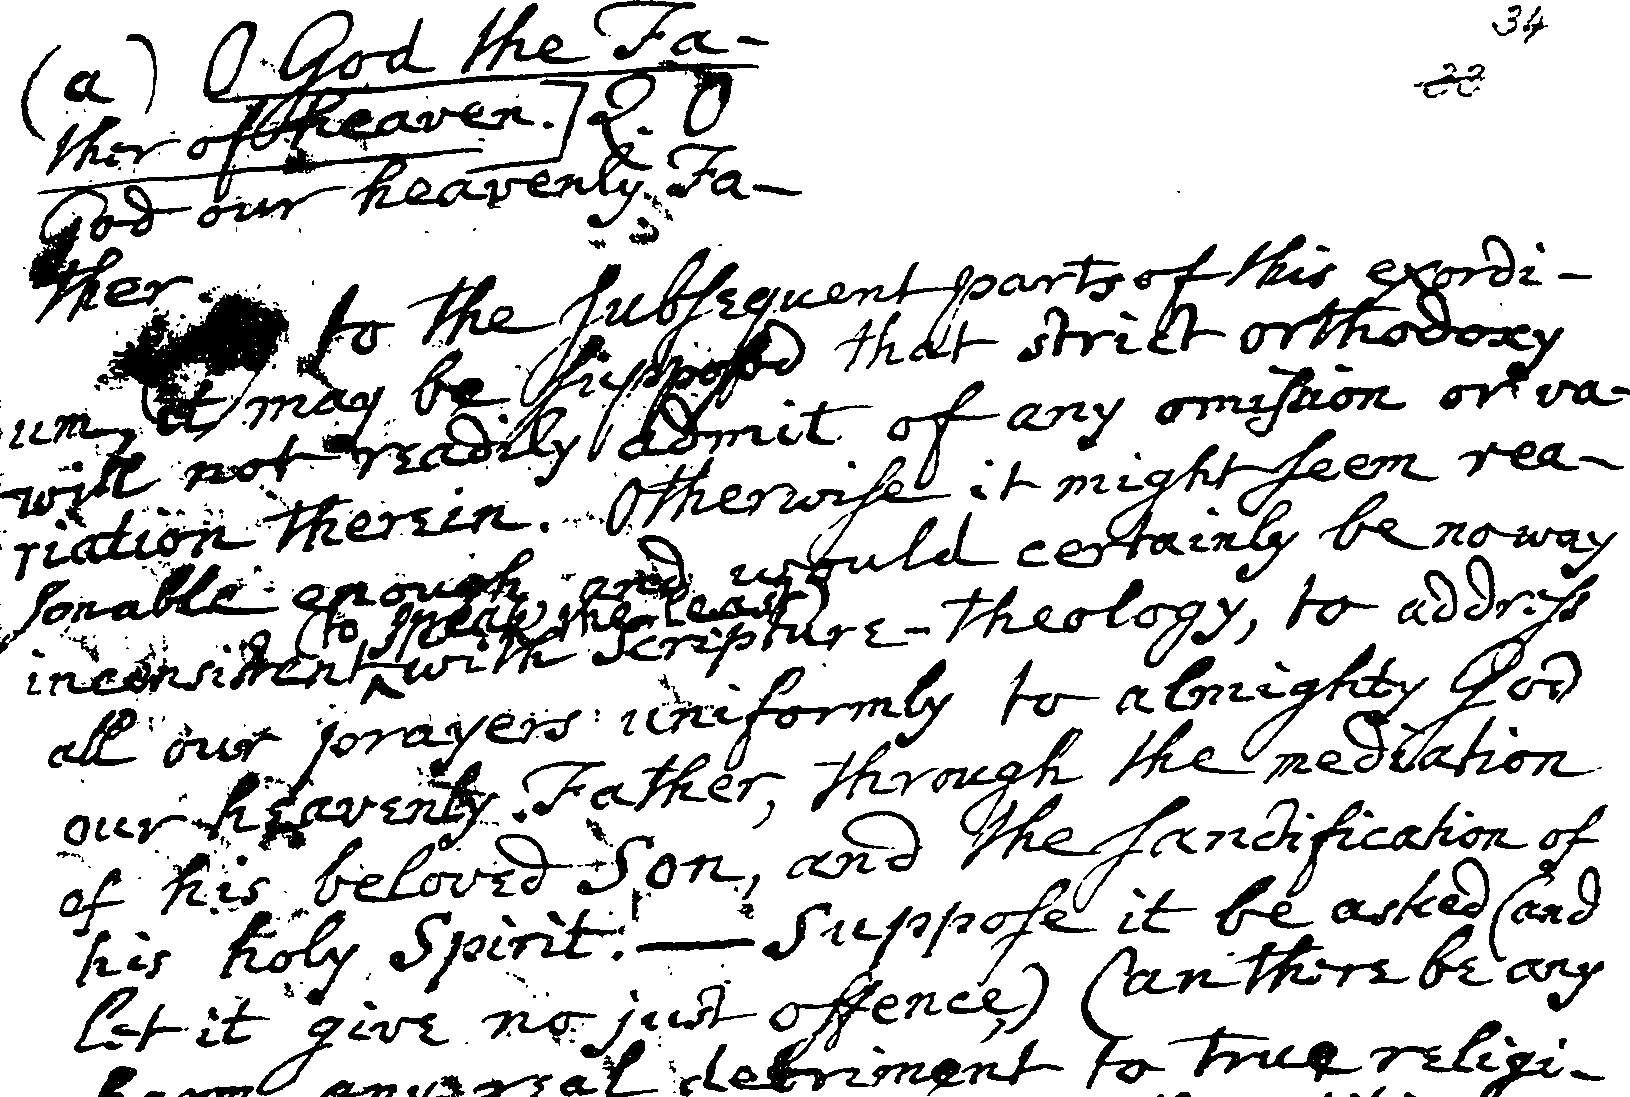 34
22
(a) O God the Fa-
ther of heaven.] Q. O
God our heavenly Fa-
ther
to the subsequent parts of this exordi-
um, it may be supposed that strict orthodoxy
will not readily admit of any omission or va-
riation therein. Otherwise it might seem rea-
sonable enough and would certainly be no way
(to speak the least)
inconsistent ‸ with Scripture-theology, to address
all our prayers uniformly to almighty God
our heavenly Father, through the mediation
of his beloved Son, and the sanctification of
his holy Spirit. — Suppose it be asked (and
let it give no just offence,) Can there be any
harm, any real detriment to true religi-